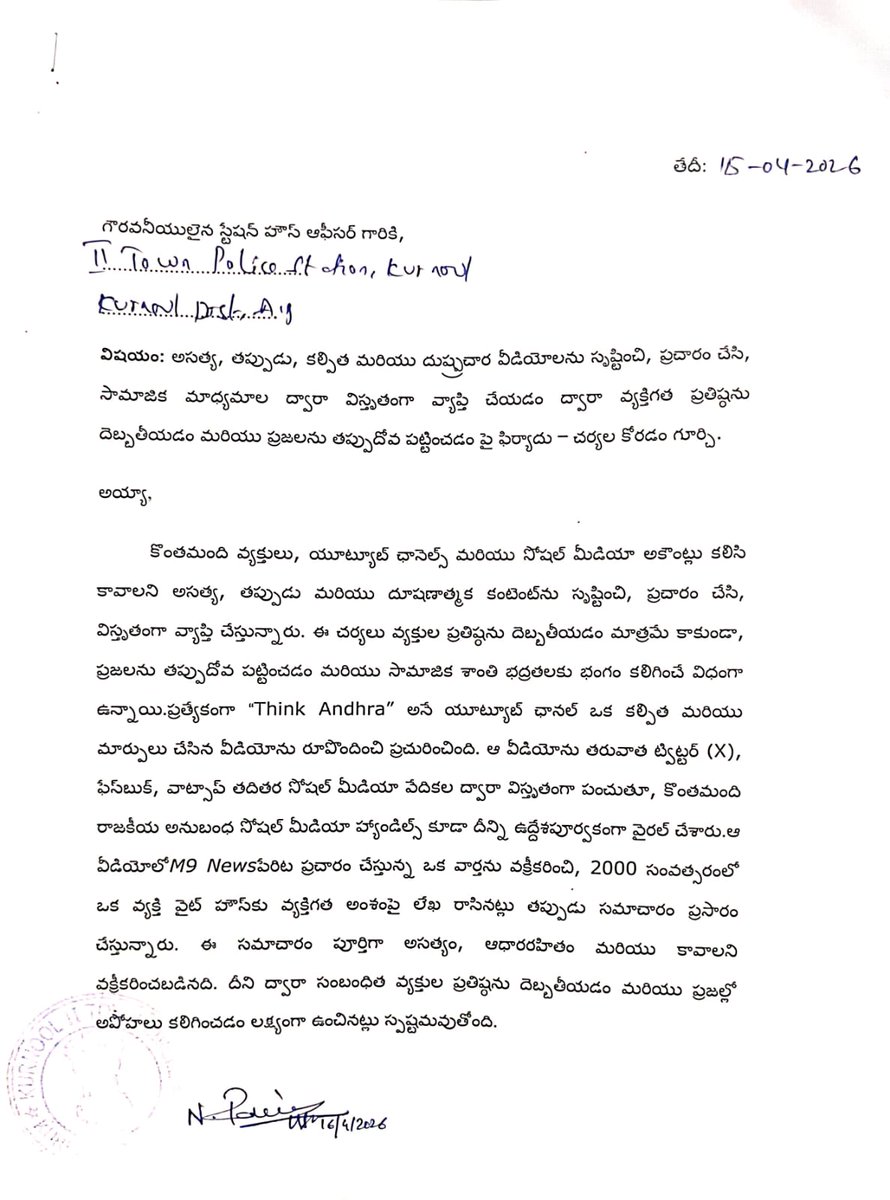 తేదీ: 15-04-2026
గౌరవనీయులైన స్టేషన్ హౌస్ ఆఫీసర్ గారికి,
II Town Police Station, Kurnool
Kurnool Dist, A.p
విషయం: అసత్య, తప్పుడు, కల్పిత మరియు దుష్ప్రచార వీడియోలను సృష్టించి, ప్రచారం చేసి,
సామాజిక మాధ్యమాల ద్వారా విస్తృతంగా వ్యాప్తి చేయడం ద్వారా వ్యక్తిగత ప్రతిష్ఠను
దెబ్బతీయడం మరియు ప్రజలను తప్పుదోవ పట్టించడం పై ఫిర్యాదు – చర్యల కోరడం గూర్చి.
అయ్యా,
కొంతమంది వ్యక్తులు, యూట్యూబ్ ఛానెల్స్ మరియు సోషల్ మీడియా అకౌంట్లు కలిసి
కావాలని అసత్య, తప్పుడు మరియు దూషణాత్మక కంటెంట్‌ను సృష్టించి, ప్రచారం చేసి,
విస్తృతంగా వ్యాప్తి చేస్తున్నారు. ఈ చర్యలు వ్యక్తుల ప్రతిష్ఠను దెబ్బతీయడం మాత్రమే కాకుండా,
ప్రజలను తప్పుదోవ పట్టించడం మరియు సామాజిక శాంతి భద్రతలకు భంగం కలిగించే విధంగా
ఉన్నాయి.ప్రత్యేకంగా "Think Andhra" అనే యూట్యూబ్ ఛానల్ ఒక కల్పిత మరియు
మార్పులు చేసిన వీడియోను రూపొందించి ప్రచురించింది. ఆ వీడియోను తరువాత ట్విట్టర్ (X),
ఫేస్‌బుక్, వాట్సాప్ తదితర సోషల్ మీడియా వేదికల ద్వారా విస్తృతంగా పంచుతూ, కొంతమంది
రాజకీయ అనుబంధ సోషల్ మీడియా హ్యాండిల్స్ కూడా దీన్ని ఉద్దేశపూర్వకంగా వైరల్ చేశారు.ఆ
వీడియోలోM9 Newsపేరిట ప్రచారం చేస్తున్న ఒక వార్తను వక్రీకరించి, 2000 సంవత్సరంలో
ఒక వ్యక్తి వైట్ హౌస్‌కు వ్యక్తిగత అంశంపై లేఖ రాసినట్లు తప్పుడు సమాచారం ప్రసారం
చేస్తున్నారు. ఈ సమాచారం పూర్తిగా అసత్యం, ఆధారరహితం మరియు కావాలని
వక్రీకరించబడినది. దీని ద్వారా సంబంధిత వ్యక్తుల ప్రతిష్ఠను దెబ్బతీయడం మరియు ప్రజల్లో
అపోహలు కలిగించడం లక్ష్యంగా ఉంచినట్లు స్పష్టమవుతోంది.
KURNOOL II TO
16/4/2026